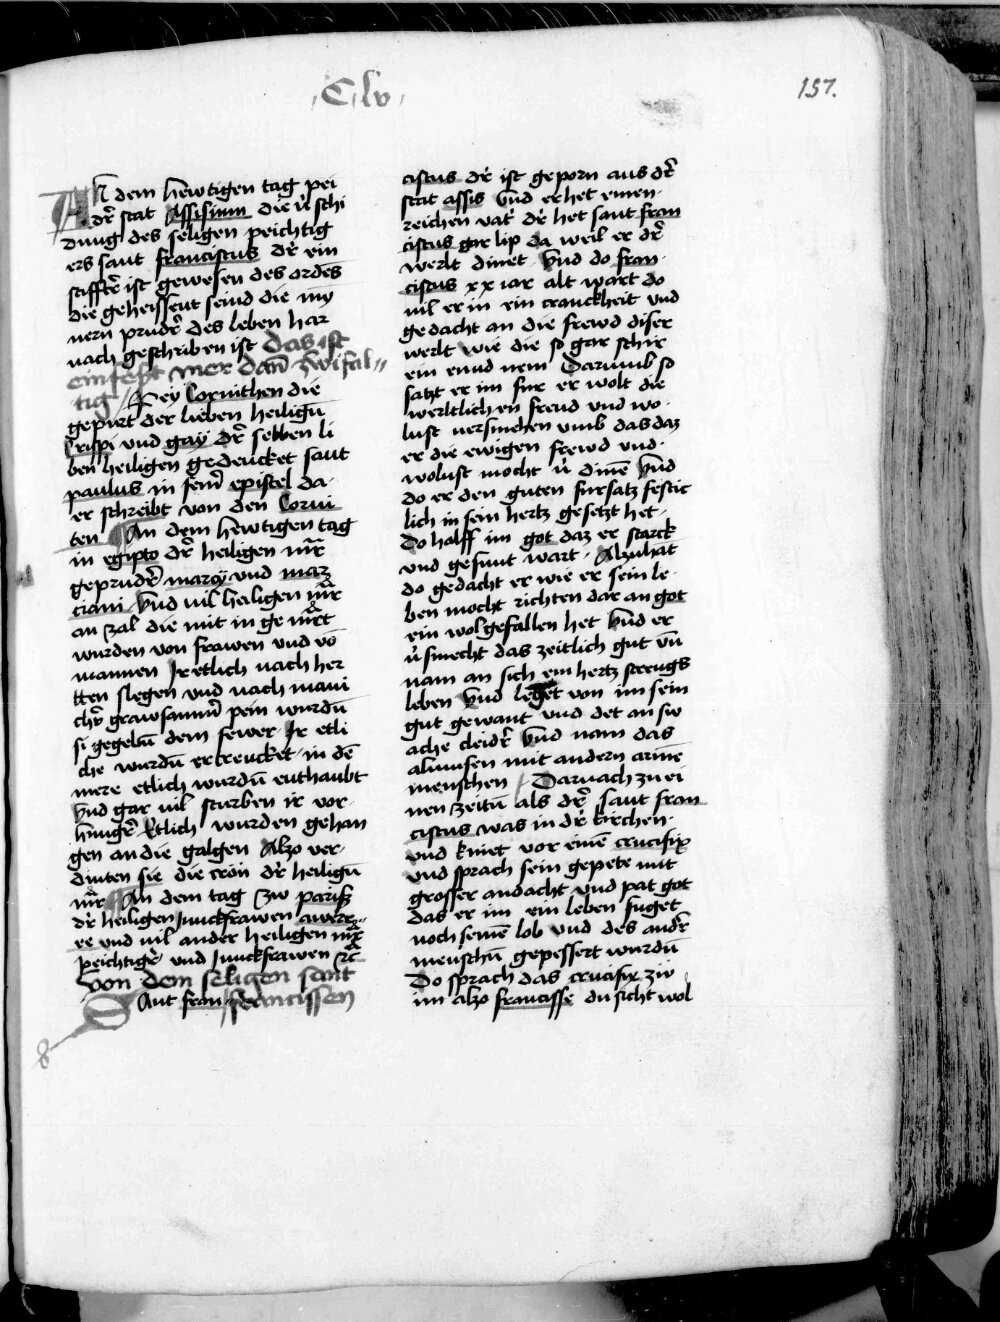 Clv
157.
An dem hewtigen tag pei
dr̄ stat Assisium die v̓schi
dung des seligen peichtig
ers sant franciscus dr̓ ein
stiffter̄ ist gewesen des ordēs
die geheissent seind die myn
nern prudr̓ des leben har
nach geschriben ist das ist
ein sept mer dan̄ zwifal-
tig / Pey Corinthen die
gepurt der lieben heiligū
Crispi vnd gay dr̄ selben li
ben heiligen gedencket sant
paulus in sein̄ epistel da
er schreibt von den Corin
ten An dem hewtigen tag
in egipto dr̄ heiligen mr̄
geprudr̄ marcy vnd marz
ciani vnd vil heiligen mr̄
an zal die mit in gemr̄t
wurden von frawen vnd vō
mannen Ir etlich nach her
tten slegen vnd nach mani
chr̄ grawsamin̄ pein wurdū
si gegebū dem fewer Ir etli
che wurdū ertrencket in dē
mere etlich wurdū enthaubt
vnd gar vil sturben ir vor
hungr̄ Etlich wurden gehan
gen an die galgen Alzo ver
dinten sie die cron dr̓ heiligū
mr̄ An dem tag zw pariß
dr̓ heiligen Junckfrawen awere-
ee vnd vil ander heiligen mr̄
peichtigr̓ vnd Junckfrawen ꝛc̄
Von dem seligen sant
Sant fran francissen
ciscus dr̓ ist geporn aus dr̄
stat assis vnd er het einen
reichen vatr̓ dr̓ het sant fran
ciscus gar lip da weil er dr̄
werlt dinet vnd do fran
ciscus xx iar alt wart do
vil er in ein cranckheit vnd
gedacht an die frewd diser
werlt wie die so gar schir
ein ennd nem Darumb so
satzt er im fur er wolt die
werltlichen freud vnd wo
lust versmehen vmb das daz
er die ewigen frewd vnd
wolust mocht v̓dinē vnd
do er den guten fursatz festic
lich in sein hertz gesetzt het
Do halff im got daz er starck
vnd gesunt wart Alzuhāt
do gedacht er wie er sein le
ben mocht richten dar an got
ein wolgefallen het vnd er
v̓smecht das zeitlich gut vn̄
nam an sich ein hertz strengs
leben vnd leget von im sein
gut gewant vnd det an sw
ache cleidr̄ vnd nam das
almusen mit andern armē
menschen / Darnach zu ei
nen zeitū als dr̄ sant fran
ciscus was in dr̄ kirchen
vnd kniet vor einē crucifix
vnd sprach sein gepete mit
grosser andacht vnd pat got
das er im ein leben fuget
noch seinē lob vnd des andr̄
menschū gepessert wurdū
Do sprach das crucifix zw
im alzo francisse du sicht wol